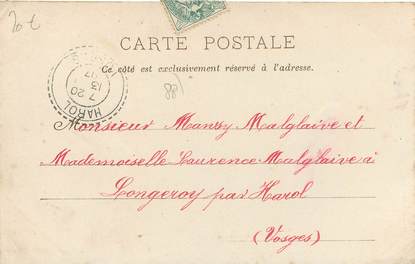 20 €
CARTE POSTALE
Ce côté est exclusivement réservé à l'adresse.
88
7 20
13
07
HAROL
Monsieur Mansy Malglaive et
Mademoiselle Laurence Malglaive à
Longeroy par Harol
(Vosges)